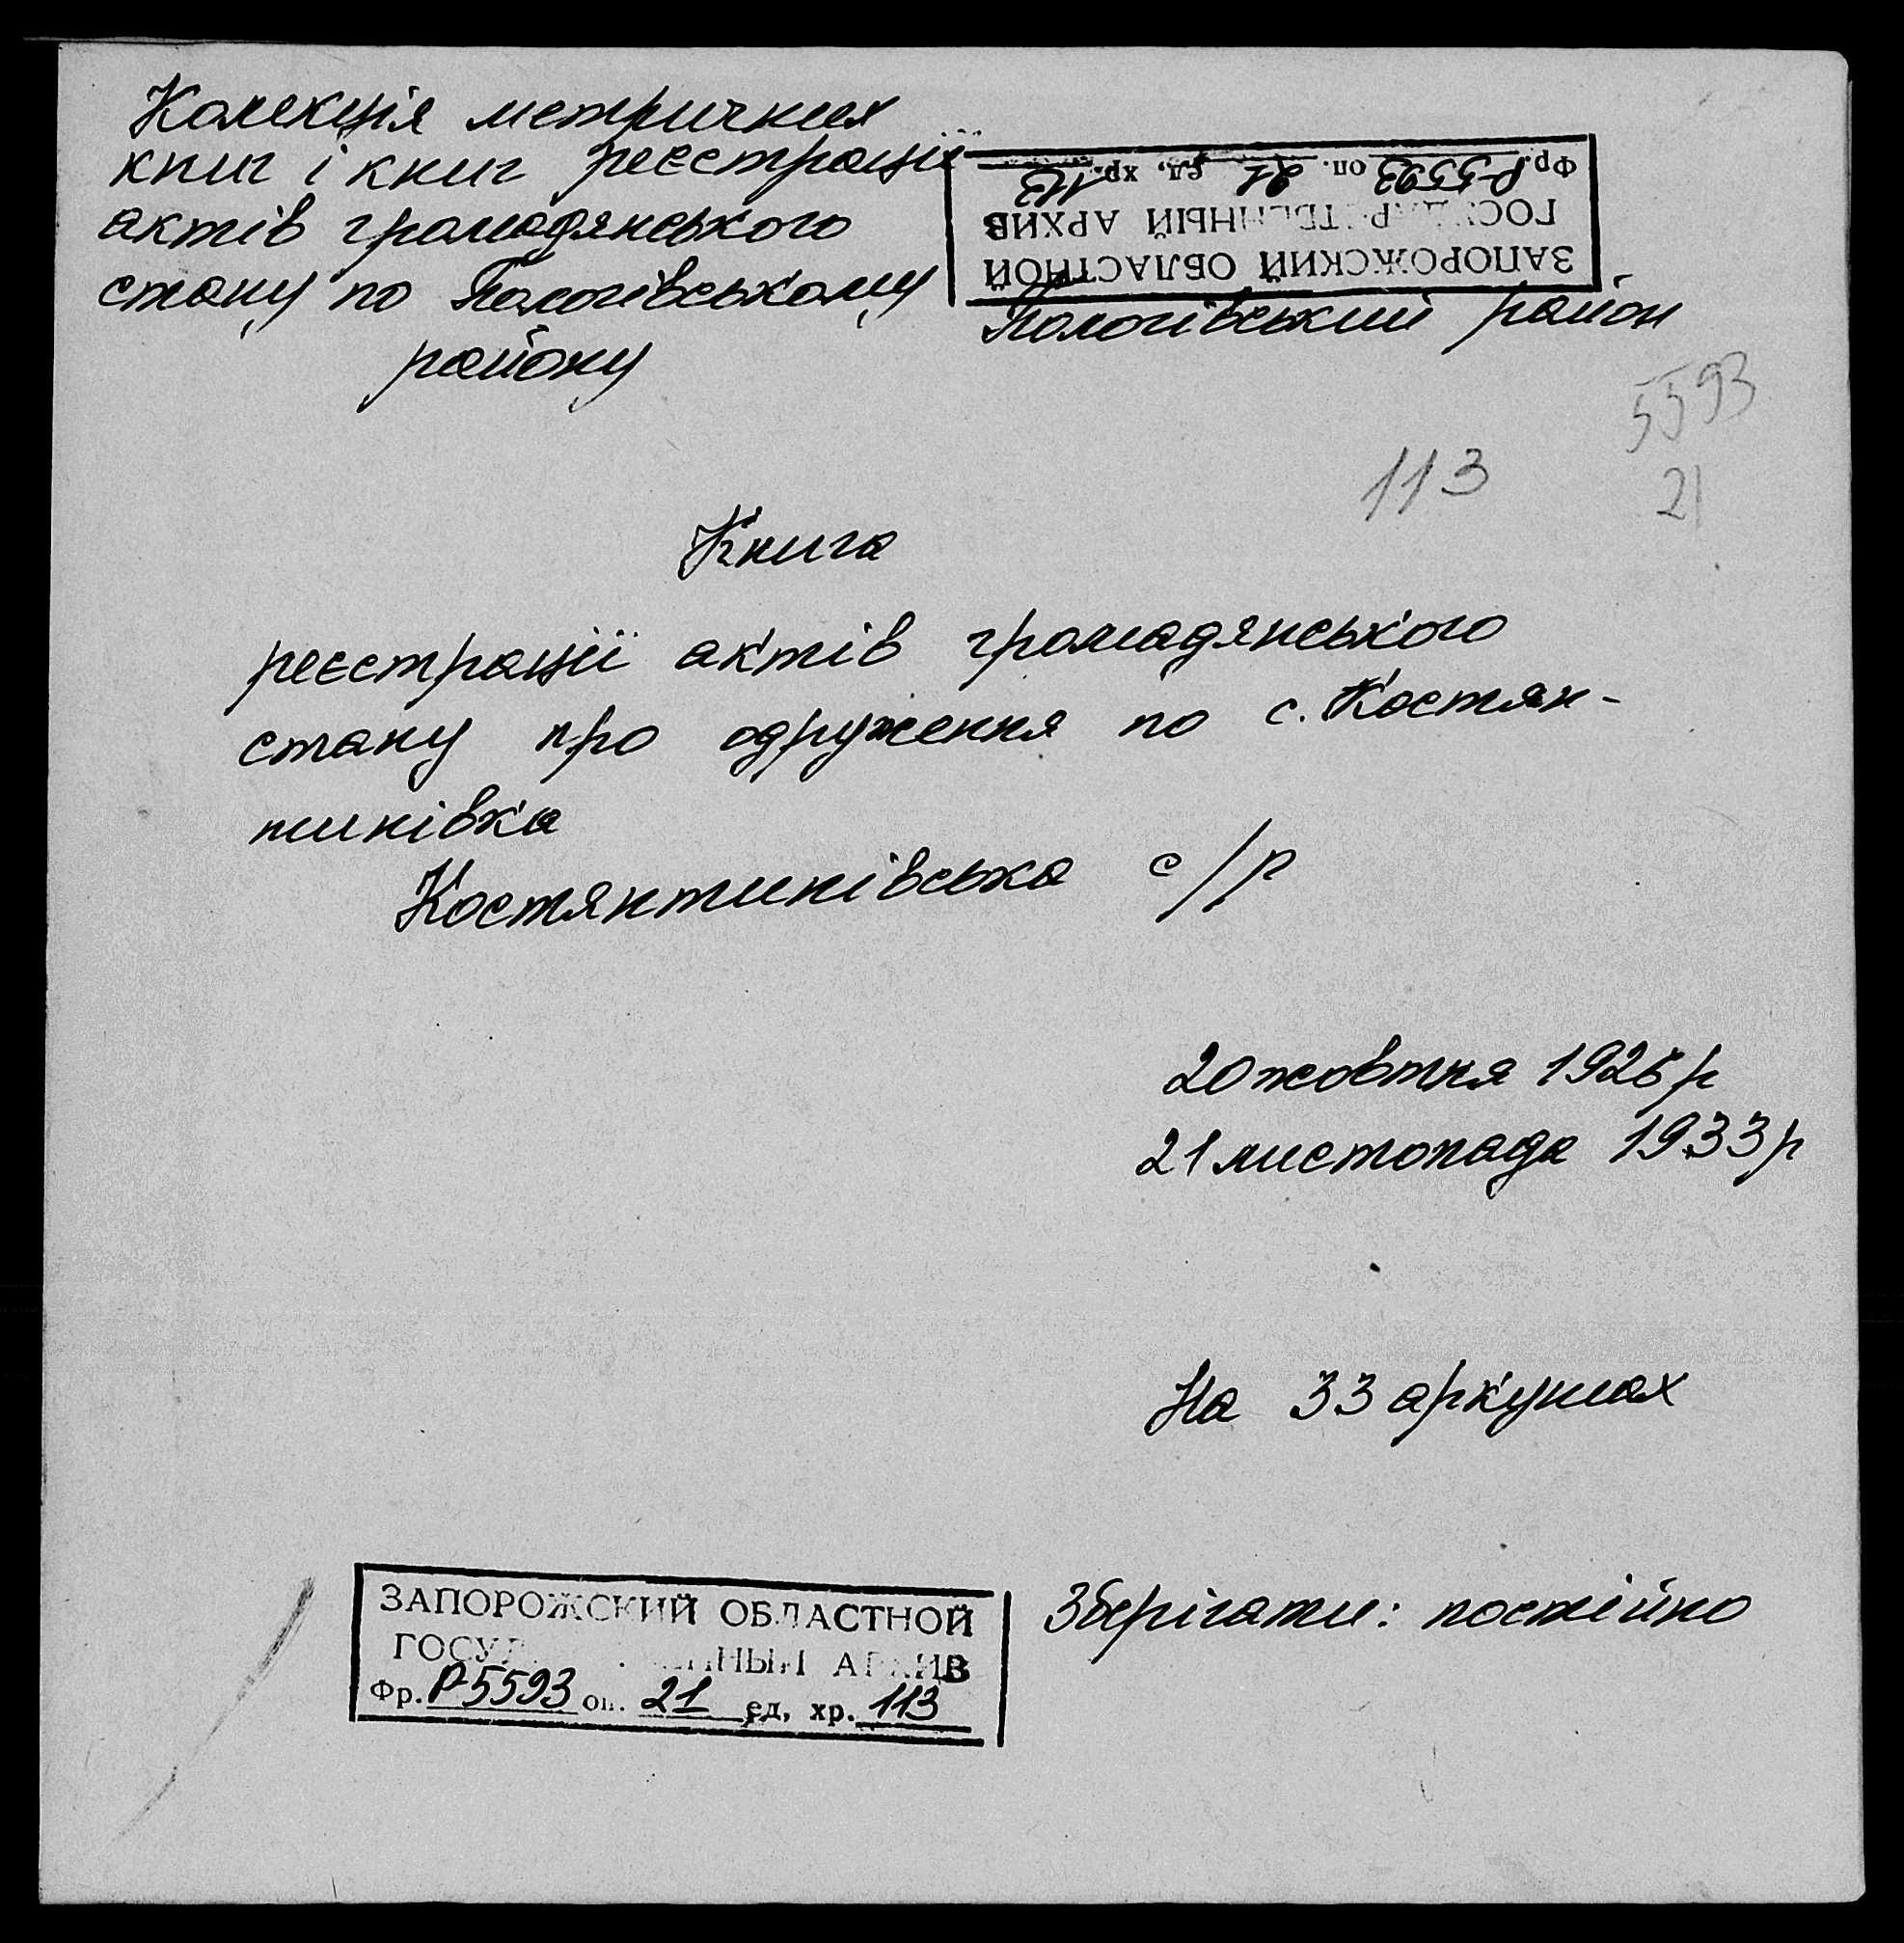 Колекція метричних
книг і книг реєстрації
актів громадянського
стану по Пологівському
району
ЗАПОРОЖСКИЙ ОБЛАСТНОЙ
ГОСУДАРСТВЕННЫЙ АРХИВ
Фр. Р-5593 оп. 21 ед. хр. 113
Пологівський район
5593
21
113
Книга
реєстрації актів громадянського
стану про одруження по с. Костян-
тинівка
Костянтинівська с/р
20 жовтня 1926 р
21 листопада 1933 р
На 33 аркушах
Зберігати: постійно
ЗАПОРОЖСКИЙ ОБЛАСТНОЙ
ГОСУДАРСТВЕННЫЙ АРХИВ
Фр. Р-5593 оп. 21 ед. хр. 113